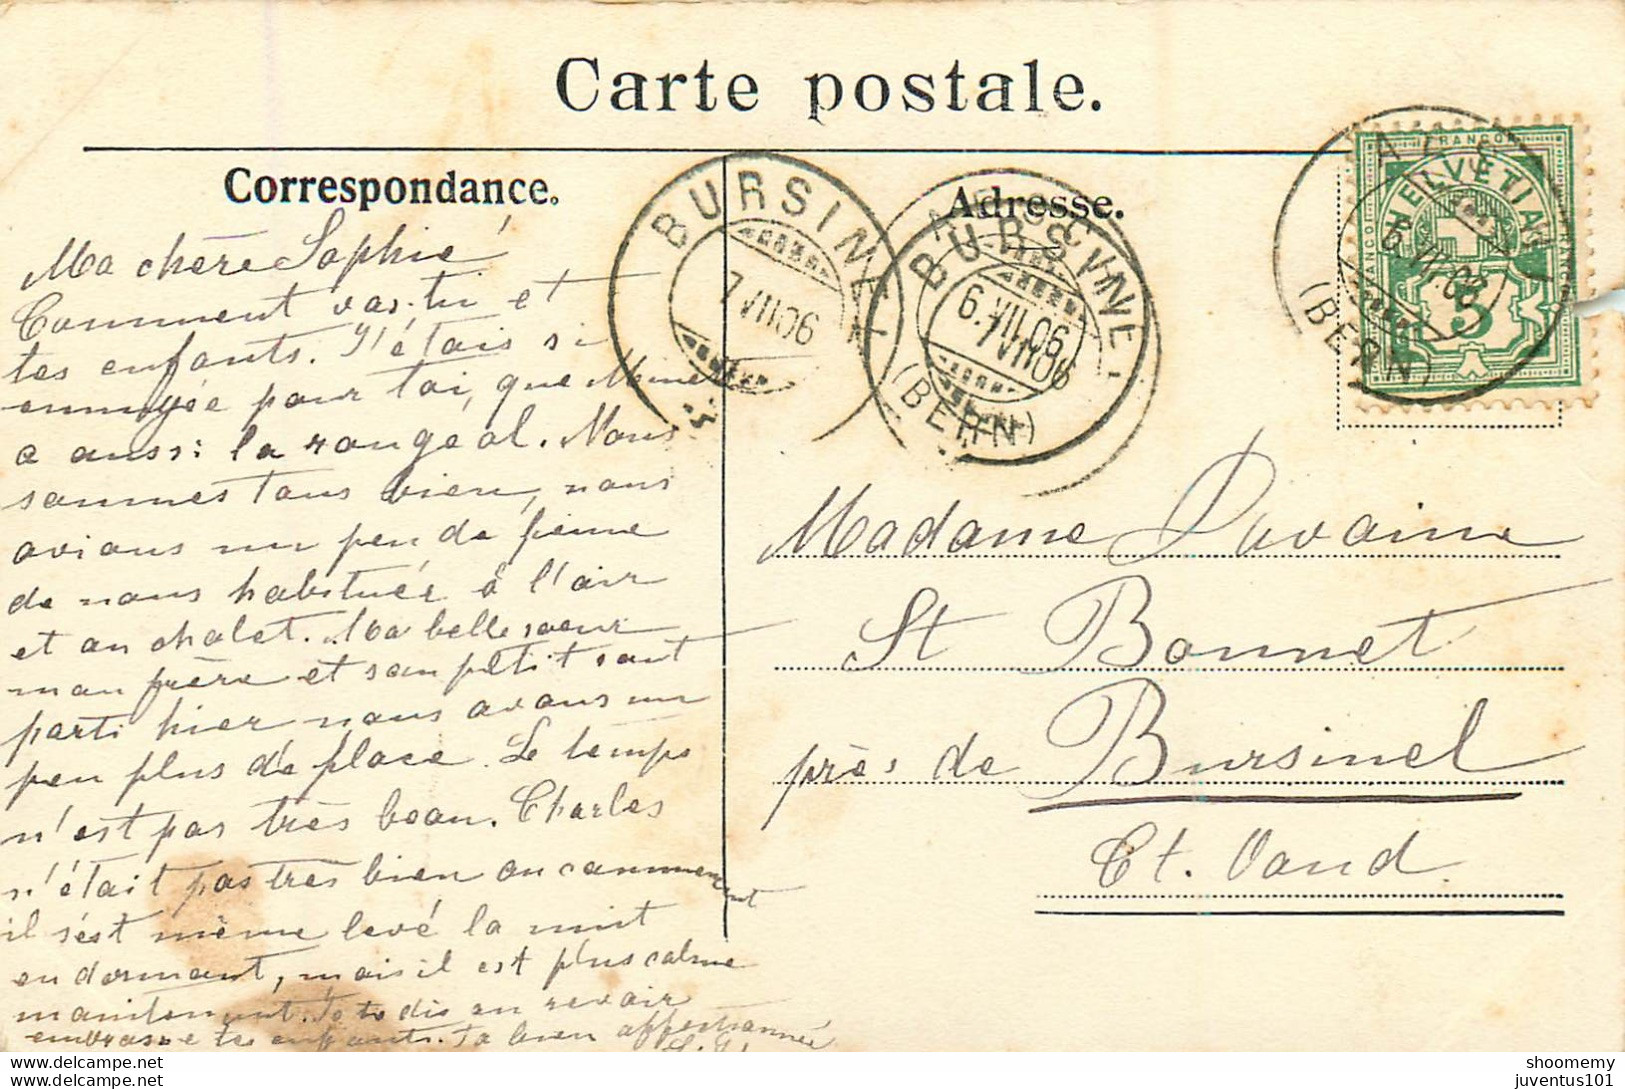 Carte postale.
Correspondance.
Adresse.
Ma chère Sophie
Comment vas-tu et
tes enfants. J'étais si
ennuyée pour toi, que Mme
a aussi la rougeol. Nous
sommes tous bien, nous
avions un peu de peine
de nous habituée à l'air
et au chalet. Ma belle soeur
mon frère et son petit sont
parti hier nous avons un
peu plus de place. Le temps
n'est pas très beau. Charles
n'était pas très bien au commencement
il s'est même levé la nuit
en dormant, mais il est plus calme
maintenant. Je te dis au revoir
embrasse tes enfants. Ta bien affectionnée
BURSINEL
7 VII 06
BURSINEL
7 VII 06
6. VII. 06
(BERN)
FRANCO
HELVETIA
5
6. VII. 06
(BERN)
Madame Davaine
St Bonnet
près de Bursinel
Ct. Vaud
shoomemy
juventus101